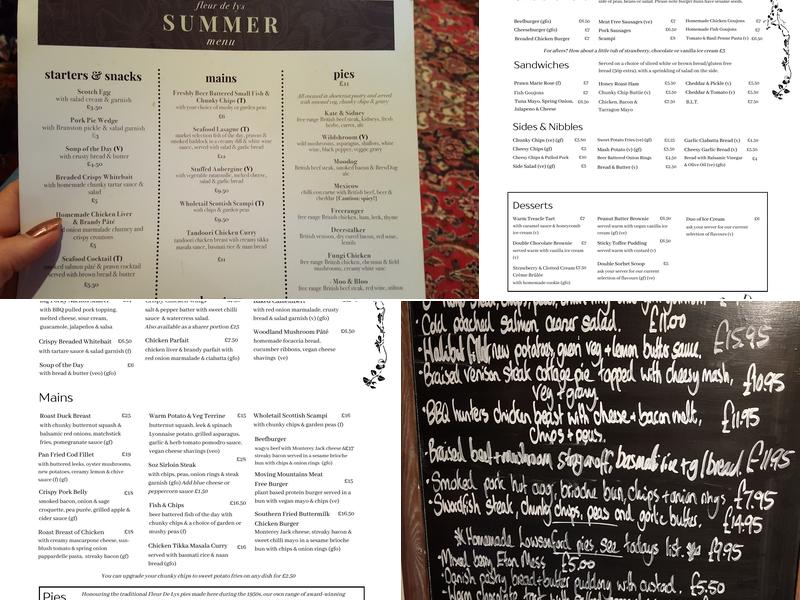 fleur de lys
SUMMER
menu
starters & snacks
Scotch Egg
with salad cream & garnish
£3.50
Pork Pie Wedge
with Branston pickle & salad garnish
£3
Soup of the Day (V)
with crusty bread & butter
£4.50
Breaded Crispy Whitebait
with homemade chunky tartar sauce &
salad
£5
Homemade Chicken Liver
& Brandy Pâté
red onion marmalade chutney and
crispy croutons
£5
Seafood Cocktail (T)
smoked salmon pâté & prawn cocktail
served with brown bread & butter
£5.50
mains
Freshly Beer Battered Small Fish &
Chunky Chips (T)
with your choice of mushy or garden peas
£6
Seafood Lasagne (T)
market selection fish of the day, prawns &
smoked haddock in a creamy dill & white wine
sauce, served with salad & garlic bread
Stuffed Aubergine (V)
with vegetable ratatouille, melted cheese,
salad & garlic bread
£9.50
Wholetail Scottish Scampi (T)
with chips & garden peas
£9.50
Tandoori Chicken Curry
tandoori chicken breast with creamy tikka
masala sauce, basmati rice & naan bread
£11
pies
£11
All encased in shortcrust pastry and served
with seasonal veg, chunky chips & gravy
Kate & Sidney
free range British beef steak, kidneys, fresh
herbs, carrot, ale
Wildshroom (V)
wild mushrooms, asparagus, shallots, white
wine, black pepper, veggie gravy
Moodog
British beef steak, smoked bacon & BrewDog
ale
Mexicow
chilli con carne with British beef, beer &
cheddar [Caution: spicy!]
Freeranger
free range British chicken, ham, leek, thyme
Deerstalker
British venison, dry cured bacon, red wine,
lentils
Fungi Chicken
free range British chicken, chestnut & field
mushrooms, creamy white sauce
Moo & Bloo
free range British beef steak, red wine, stilton
Beefburger (gfo) £6.50
Cheeseburger (gfo) £7
Breaded Chicken Burger £7
Meat Free Sausages (ve) £7
Pork Sausages £6.50
Scampi £8
Homemade Chicken Goujons £7
Homemade Fish Goujons £7
Tomato & Basil Penne Pasta (v) £6.50
For afters? How about a little tub of strawberry, chocolate or vanilla ice cream £3
Sandwiches
Served on a choice of sliced white or brown bread/gluten free
bread (50p extra), with a sprinkling of salad on the side.
Prawn Marie Rose (f) £7
Fish Finger £7
Tuna Mayo, Spring Onion, £6.50
Jalapeno & Cheese
Honey Roast Ham £5.50
Chunky Chip Buttie (v) £5.50
Chicken, Bacon & £7.50
Tarragon Mayo
Cheddar & Pickle (v) £5.50
Cheddar & Tomato (v) £5.50
B.L.T. £7.50
Sides & Nibbles
Chunky Chips (ve) (gf) £3.50
Cheesy Chips (gf) £5
Cheesy Chips & Pulled Pork £10
Side Salad (ve) (gf) £5
Sweet Potato Fries (ve) (gf) £5.25
Mash Potato (v) (gf) £3.50
Beer Battered Onion Rings £4.50
Bread & Butter (v) £2.50
Garlic Ciabatta Bread (v) £4.50
Cheesy Garlic Bread (v) £5.50
Bread with Balsamic Vinegar £4
& Olive Oil (ve) (gfo)
Desserts
Warm Treacle Tart £7
with caramel sauce & honeycomb
ice cream (v)
Double Chocolate Brownie £7
served warm with vanilla ice cream
(v)
Strawberry & Clotted Cream £7.50
Crème Brûlée
with homemade cookie (gfo)
Peanut Butter Brownie £6.50
served warm with vegan vanilla ice
cream (gf) (ve)
Sticky Toffee Pudding £6.50
served warm with custard (v)
Double Sorbet Scoop £5
ask your server for our current
selection of flavours (gf) (ve)
Duo of Ice Cream £6
ask your server for our current
selection of flavours (v)
with BBQ pulled pork topping,
melted cheese, sour cream,
guacamole, jalapeños & salsa
Crispy Breaded Whitebait £6.50
with tartare sauce & salad garnish (f)
Soup of the Day £6
with bread & butter (veo) (gfo)
salt & pepper batter with sweet chilli
sauce & watercress salad.
Also available as a sharer portion £15
Chicken Parfait £7.50
chicken liver & brandy parfait with
red onion marmalade & ciabatta (gfo)
with red onion marmalade, crusty
bread & salad garnish (v) (gfo)
Woodland Mushroom Pâté £6.50
homemade focaccia bread,
cucumber ribbons, vegan cheese
shavings (ve)
Mains
Roast Duck Breast £25
with chunky butternut squash &
balsamic red onions, matchstick
fries, pomegranate sauce (gf)
Pan Fried Cod Fillet £19
with buttered leeks, oyster mushrooms,
new potatoes, creamy lemon & chive
sauce (f) (gf)
Crispy Pork Belly £18
smoked bacon, onion & sage
croquette, pea purée, grilled apple &
cider sauce (gf)
Roast Breast of Chicken £18
with creamy mascarpone cheese, sun-
blush tomato & spring onion
pappardelle pasta, streaky bacon (gf)
Warm Potato & Veg Terrine £15
butternut squash, leek & spinach
Lyonnaise potato, grilled asparagus,
garlic & herb tomato pomodro sauce,
vegan cheese shavings (veo)
8oz Sirloin Steak £28
with chips, peas, onion rings & steak
garnish (gfo) Add blue cheese or
peppercorn sauce £1.50
Fish & Chips £16.50
beer battered fish of the day with
chunky chips & a choice of garden or
mushy peas (f)
Chicken Tikka Masala Curry £16
served with basmati rice & naan
bread (gfo)
Wholetail Scottish Scampi £16
with chunky chips & garden peas (f)
Beefburger
wagyu beef with Monterey Jack cheese & £17
streaky bacon served in a sesame brioche
bun with chips & onion rings (gfo)
Moving Mountains Meat
Free Burger £15
plant based protein burger served in a
bun with vegan mayo & chips (ve)
Southern Fried Buttermilk £16.50
Chicken Burger
Monterey Jack cheese, streaky bacon &
sweet chilli mayo in a sesame brioche
bun with chips & onion rings (gfo)
You can upgrade your chunky chips to sweet potato fries on any dish for £2.50
Pies
Honouring the traditional Fleur De Lys pies made here during the 1950s, our own range of award-winning
Cold poached salmon caesar salad. £11.00
Halibut fillet new potatoes, green veg + lemon butter sauce. £15.95
Braised venison steak cottage pie topped with cheesy mash,
veg + gravy £10.95
BBQ hunters chicken breast with cheese + bacon melt,
chips + peas. £11.95
Braised beef + mushroom stroganoff, basmati rice + g/bread. £11.95
Smoked pork hot dog, brioche bun, chips + onion rings £7.95
Swordfish steak, chunky chips, peas and garlic butter. £14.95
Homemade Lowsonford pies see todays list. £9.95
Mixed berry Eton Mess £5.00
Danish pastry bread + butter pudding with custard. £5.50